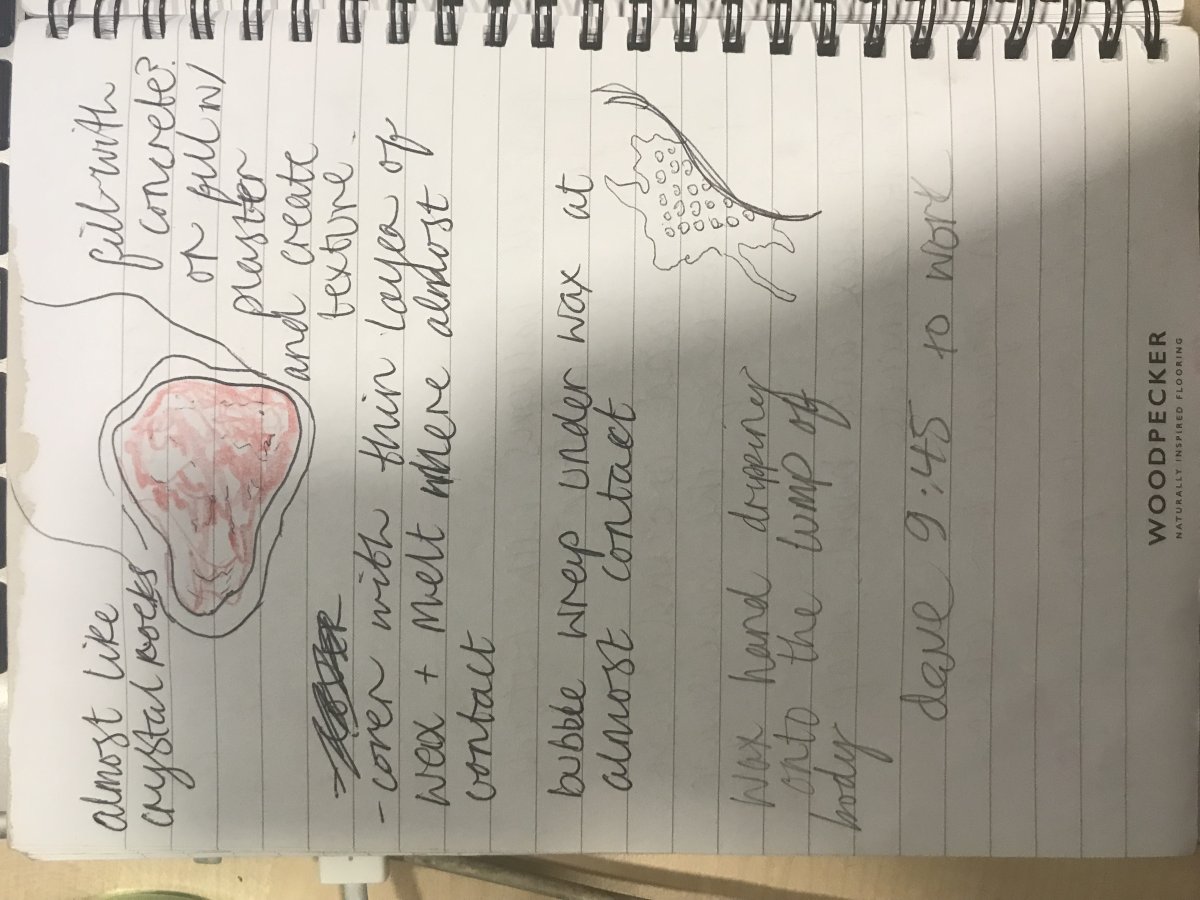 almost like
crystal rocks
fill with
concrete?
or fill w/
plaster
and create
texture.
- cover with thin layer of
wax + melt where almost
contact
bubble wrap under wax at
almost contact
wax hand dripping
onto the lump of
body
dave 9:45 to work
WOODPECKER
NATURALLY INSPIRED FLOORING